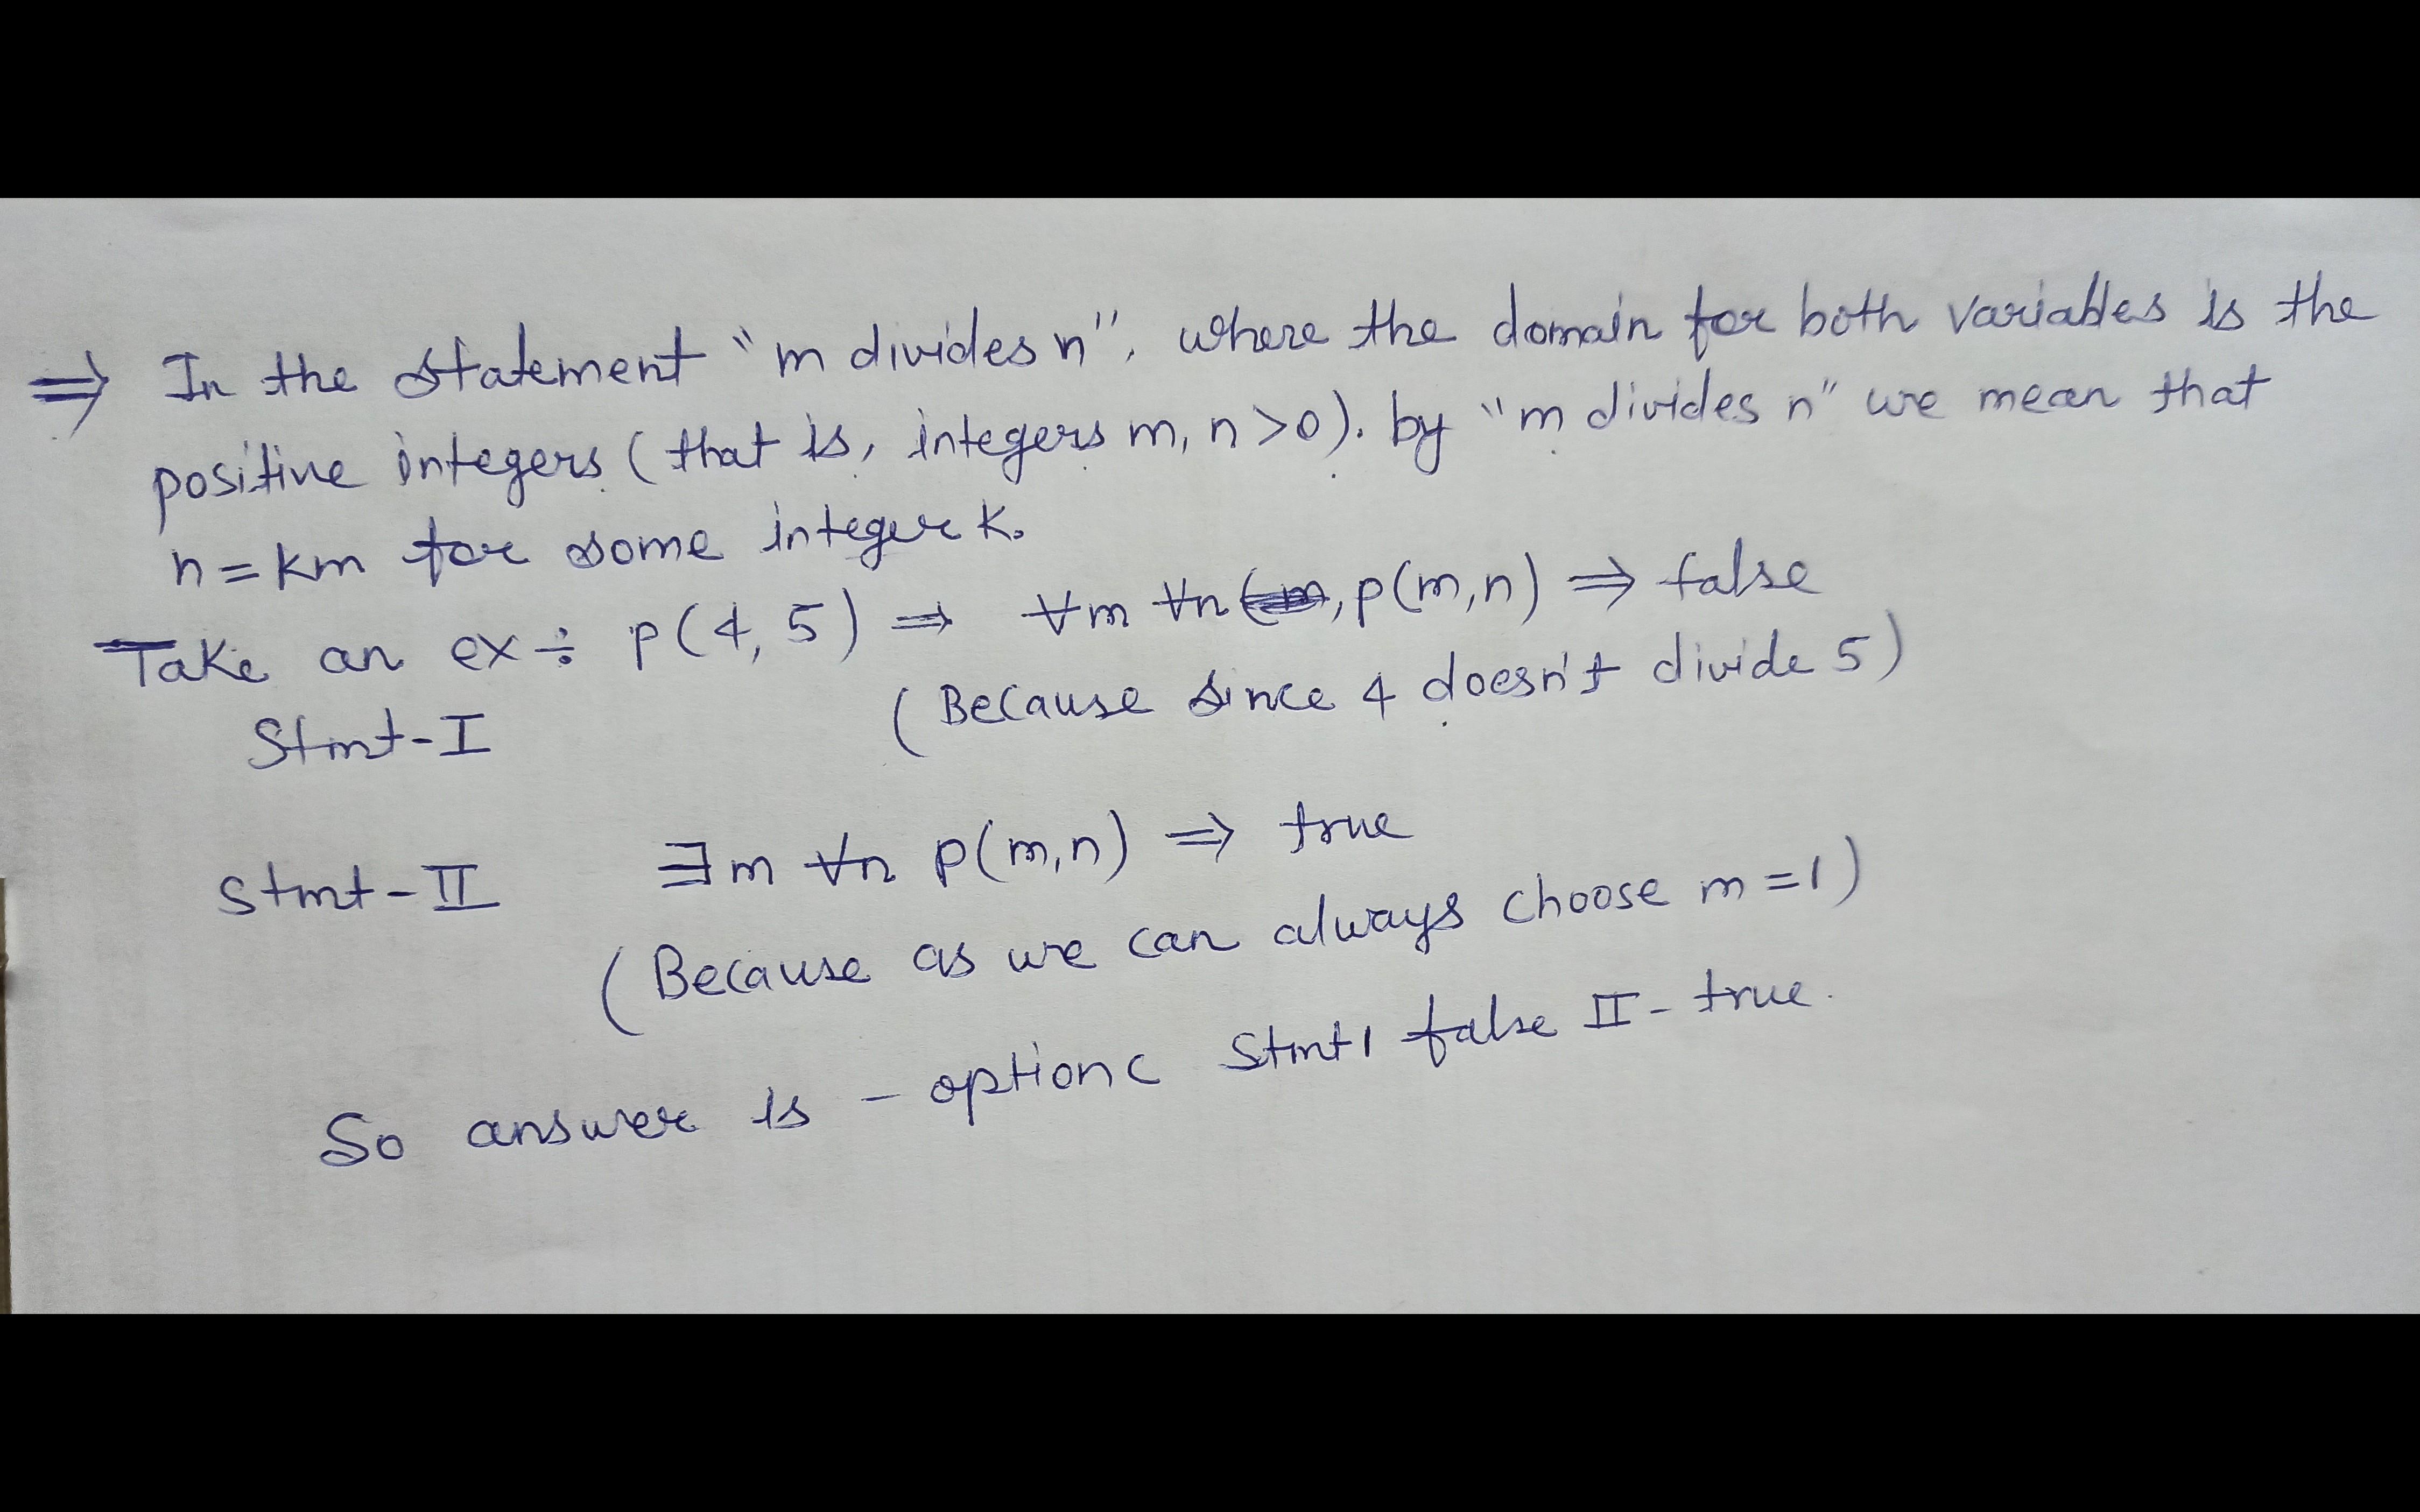 ⇒ In the statement "m divides n", where the domain for both variables is the
positive integers (that is, integers m, n >0). by "m divides n" we mean that
n = km for some integer k.
Take an ex ÷ P(4, 5) ⇒ ∀m ∀n , P(m,n) ⇒ false
Stmt-I (Because since 4 doesn't divide 5)
Stmt-II ∃m ∀n P(m,n) ⇒ true
(Because as we can always choose m=1)
So answer is - option c Stmt1 false II- true.